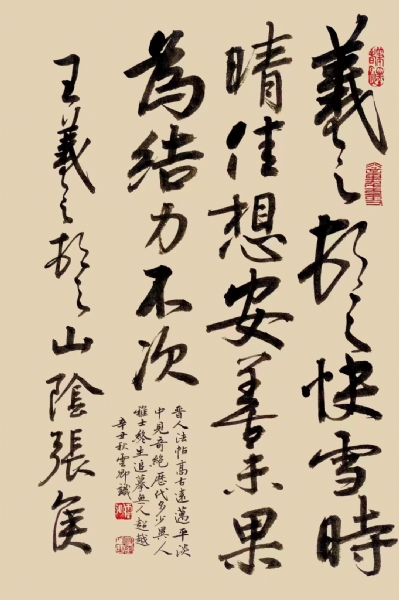 羲之頓首快雪時
晴佳想安善未果
為結力不次
王羲之頓首山陰張侯
晉人法帖高古遠邁平淡
中見奇絕歷代多少異人
雅士終生追摹無人超越
辛丑秋雲卿識